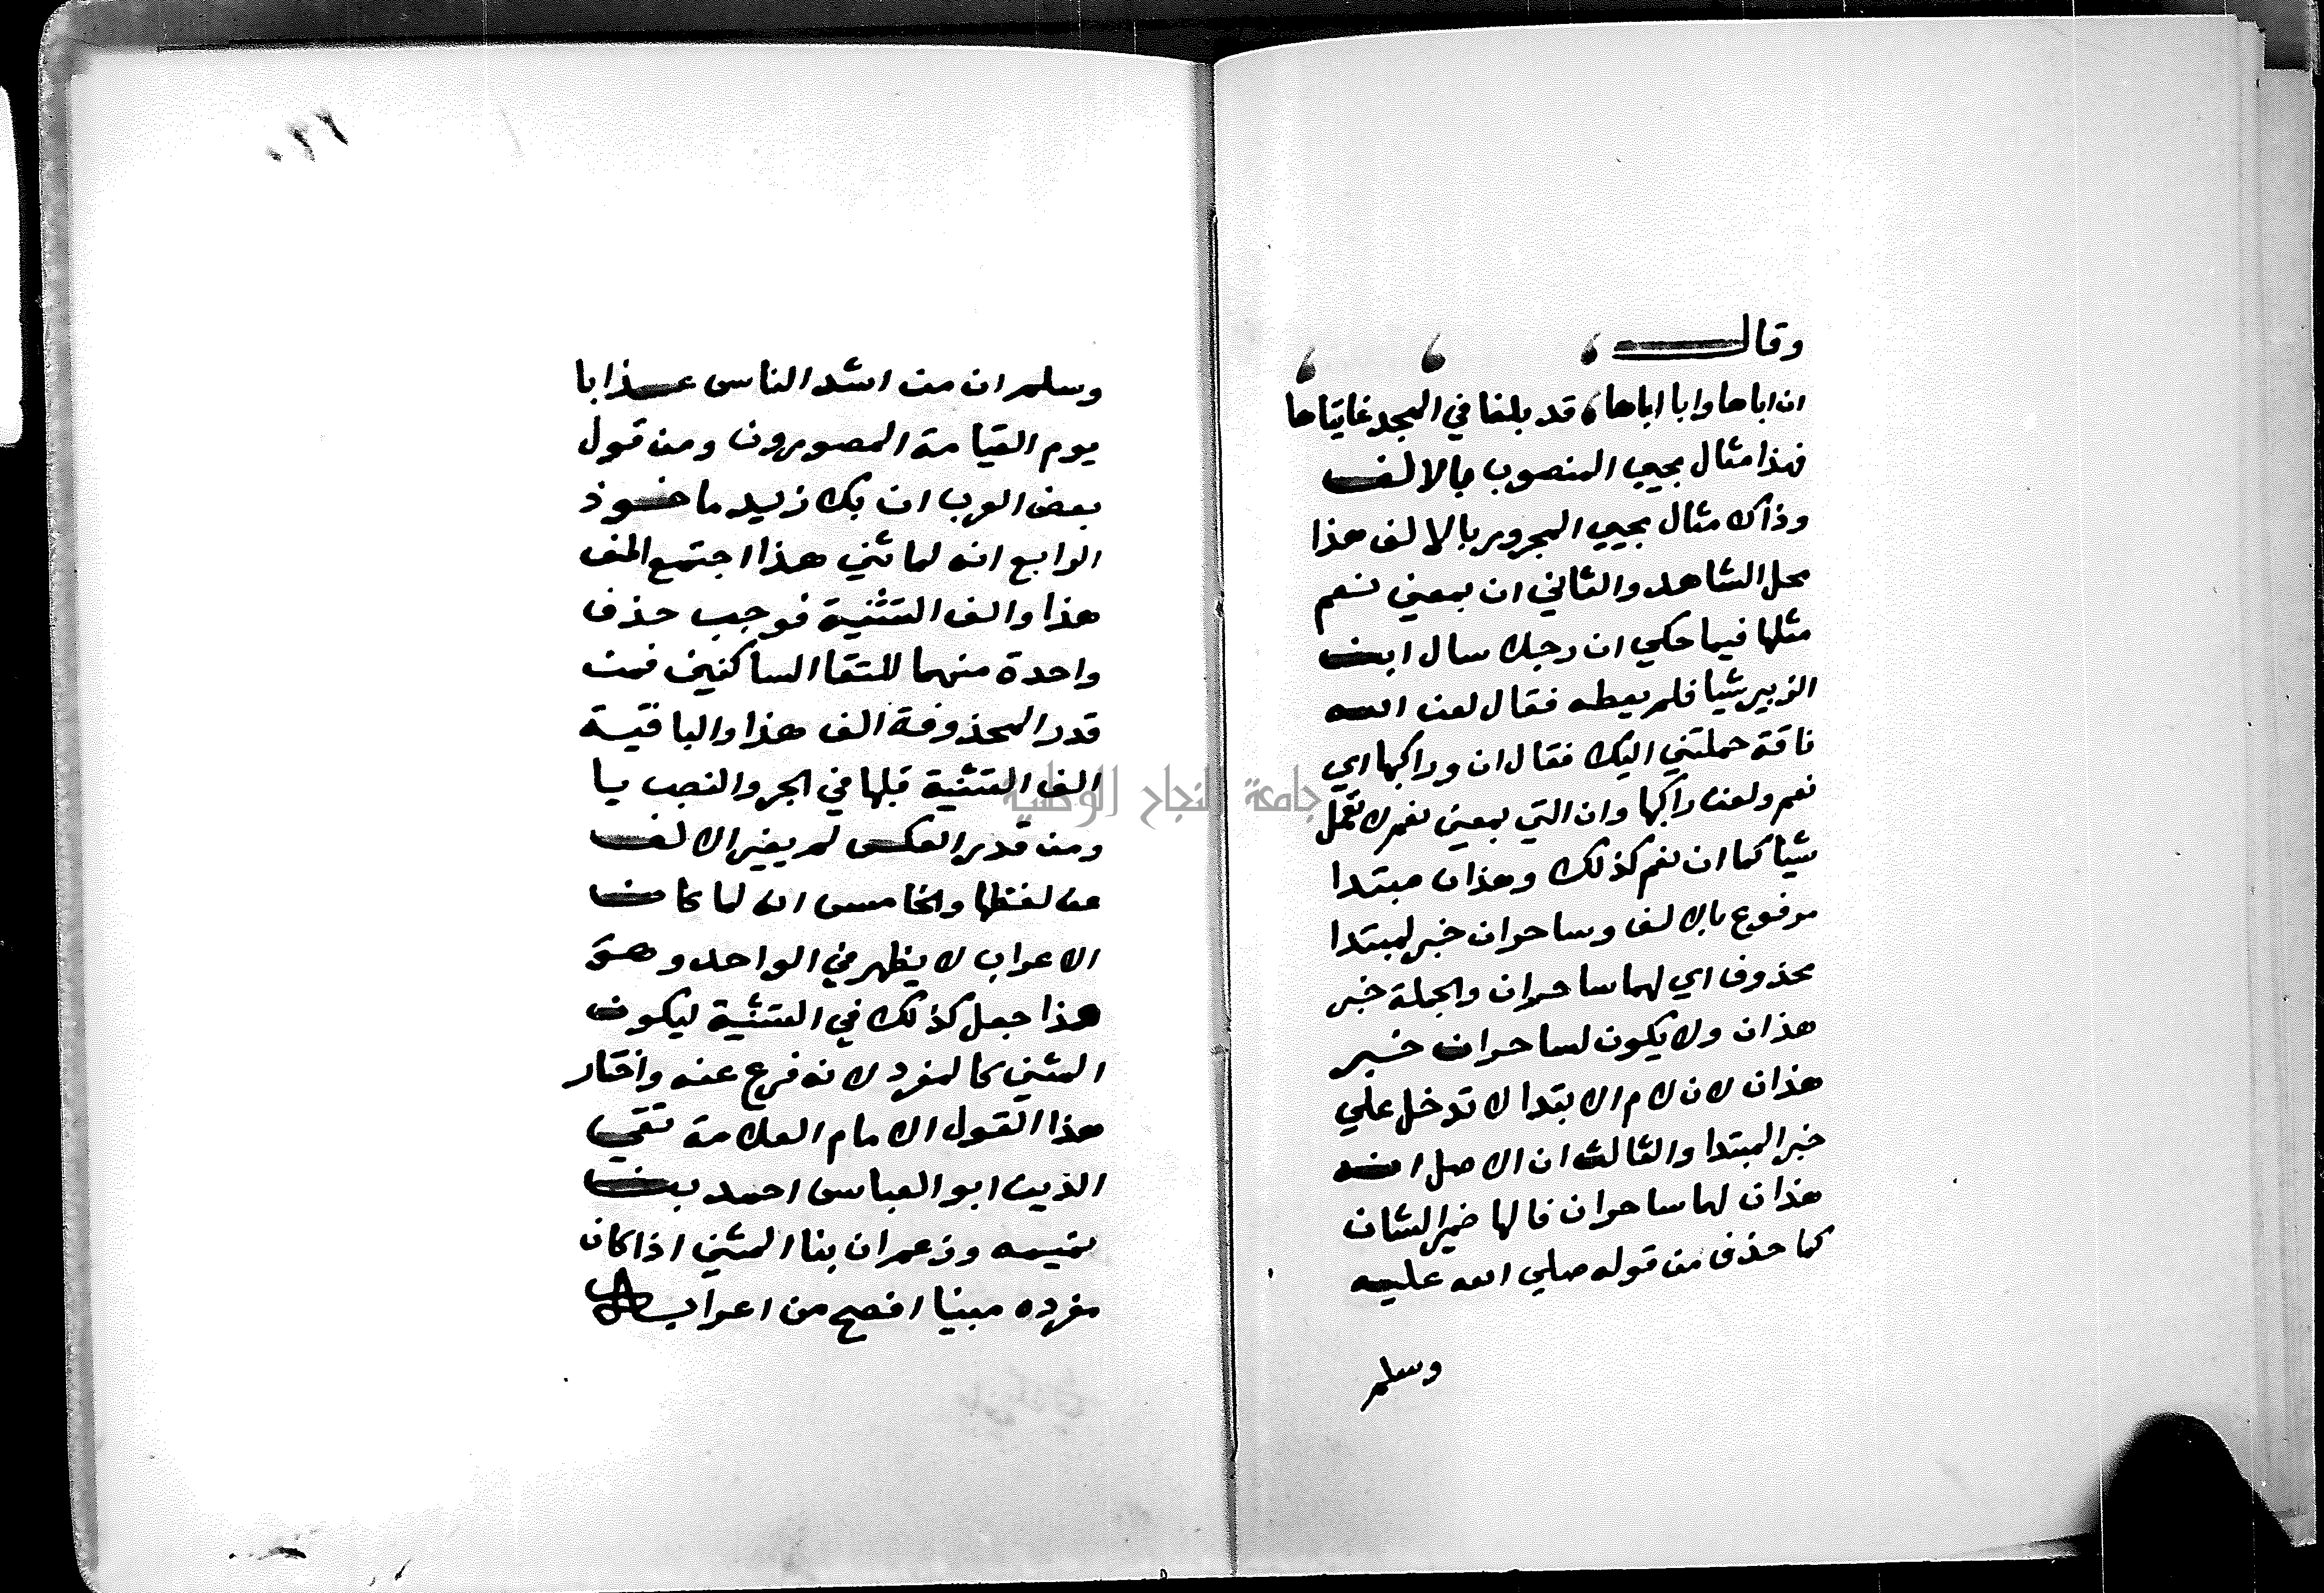 وقال
ان اباها وابا اباها قد بلغا في المجد غايتاها
فهذا مثال مجيي المنصوب بالالف
وذاك مثال مجيي المجرور بالالف هذا
محل الشاهد والثاني ان بمعني نعم
مثلها فيما حكي ان رجلا سال ابن
الزبير شيا فلم يعطه فقال لعن الله
ناقة حملتني اليك فقال ان وراكبها اي
نعم ولعن راكبها وان التي بمعني نعم لا تعمل
شيا كما ان نعم كذلك وهذان مبتدا
مرفوع بالالف وساحران خبر لمبتدا
محذوف اي لهما ساحران والجملة خبر
هذان ولا يكون لساحران خبر
هذان لان لام الابتدا لا تدخل علي
خبر المبتدا والثالث ان الاصل انه
هذان لهما ساحران فالها ضمير الشان
كما حذف من قوله صلي الله عليه
وسلم
وسلم ان من اشد الناس عذابا
يوم القيامة المصورون ومن قول
بعض العرب ان بك زيد ماخوذ
الرابع انه لما ثني هذا اجتمع الف
هذا والف التثنية فوجب حذف
واحدة منهما للتقا الساكنين فمن
قدر المحذوفة الف هذا والباقية
الف التثنية قبلها في الجر والنصب يا
ومن قدر العكس لم يغير الالف
عن لفظها والخامس انه لما كان
الاعراب لا يظهر في الواحد وهو
هذا جعل كذلك في التثنية ليكون
المثني كالمفرد لانه فرع عنه واختار
هذا القول الامام العلامة تقي
الدين ابو العباس احمد بن
تيميه وزعم ان بنا المثني اذا كان
مفرده مبنيا افصح من اعرابه
جامعة النجاح الوطنية